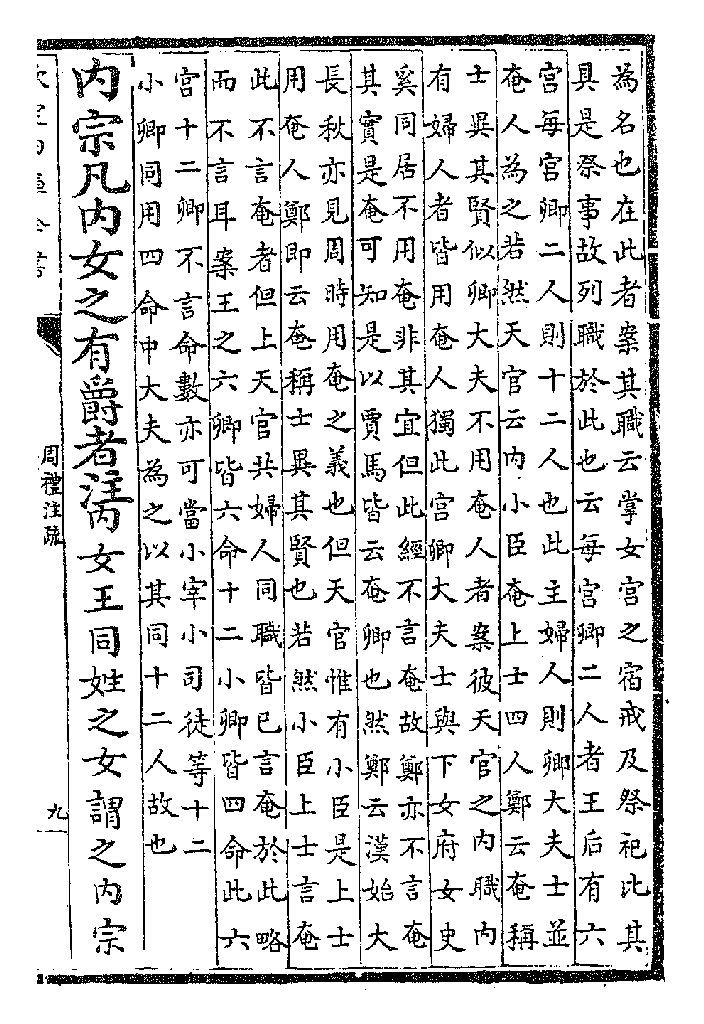 為名也在此者案其職云掌女宫之宿戒及祭祀比其
具是祭事故列職於此也云每宫卿二人者王后有六
宫每宫卿二人則十二人也此主婦人則卿大夫士並
奄人為之若然天官云内小臣奄上士四人鄭云奄稱
士異其賢似卿大夫不用奄人者案彼天官之内職内
有婦人者皆用奄人獨此宫卿大夫士與下女府女史
奚同居不用奄非其宜但此經不言奄故鄭亦不言奄
其實是奄可知是以賈馬皆云奄卿也然鄭云漢始大
長秋亦見周時用奄之義也但天官惟有小臣是上士
用奄人鄭即云奄稱士異其賢也若然小臣上士言奄
此不言奄者但上天官共婦人同職皆已言奄於此略
而不言耳案王之六卿皆六命十二小卿皆四命此六
宫十二卿不言命數亦可當小宰小司徒等十二
小卿同用四命中大夫為之以其同十二人故也
内宗凡内女之有爵者注内女王同姓之女謂之内宗
周禮注疏
九